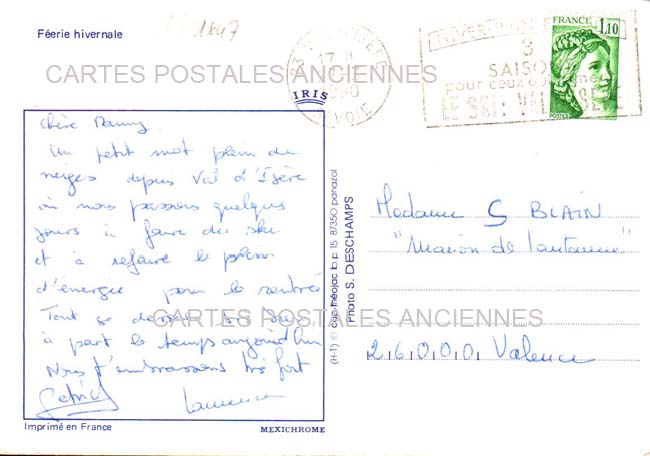 Féerie hivernale
1647
FRANCE
1,10
POSTES
3
SAISO
pour ceux qui aiment
LE SKI : VAL D'ISERE
CARTES POSTALES ANCIENNES
IRIS
SAVOIE
Chère Manny
Un petit mot plein de
neiges depuis Val d'Isère
où nous passons quelques
jours à faire du ski
et à refaire le plein
d'énergie pour la rentrée
Tout se déroule
à part le temps aujourd'hui
Nous t'embrassons très fort
Laurence
(H-T) © cap-théojac b.p. 15 87350 panazol
Photo S. DESCHAMPS
Madame S BLAIN
"Maison de
26000 Valence
CARTES POSTALES ANCIENNES
Imprimé en France
MEXICHROME